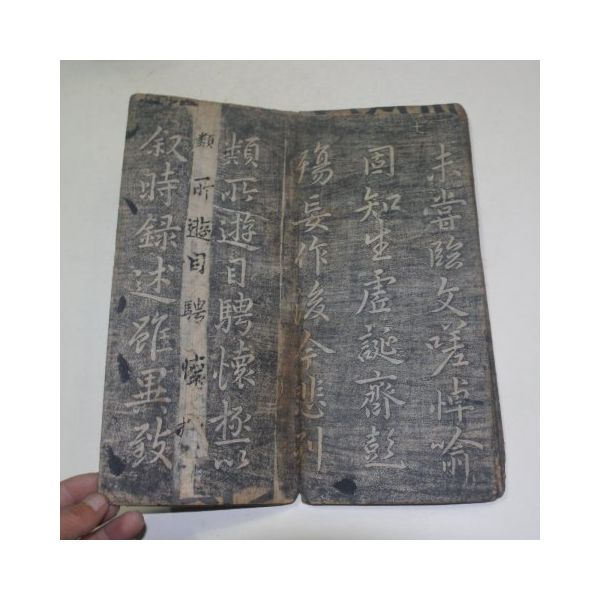 七
未嘗臨文嗟悼喻
固知生虛誕齊彭
殤妄作後今悲列
類所遊目騁懷極以
類所遊目騁懷
叙時録述雖異致